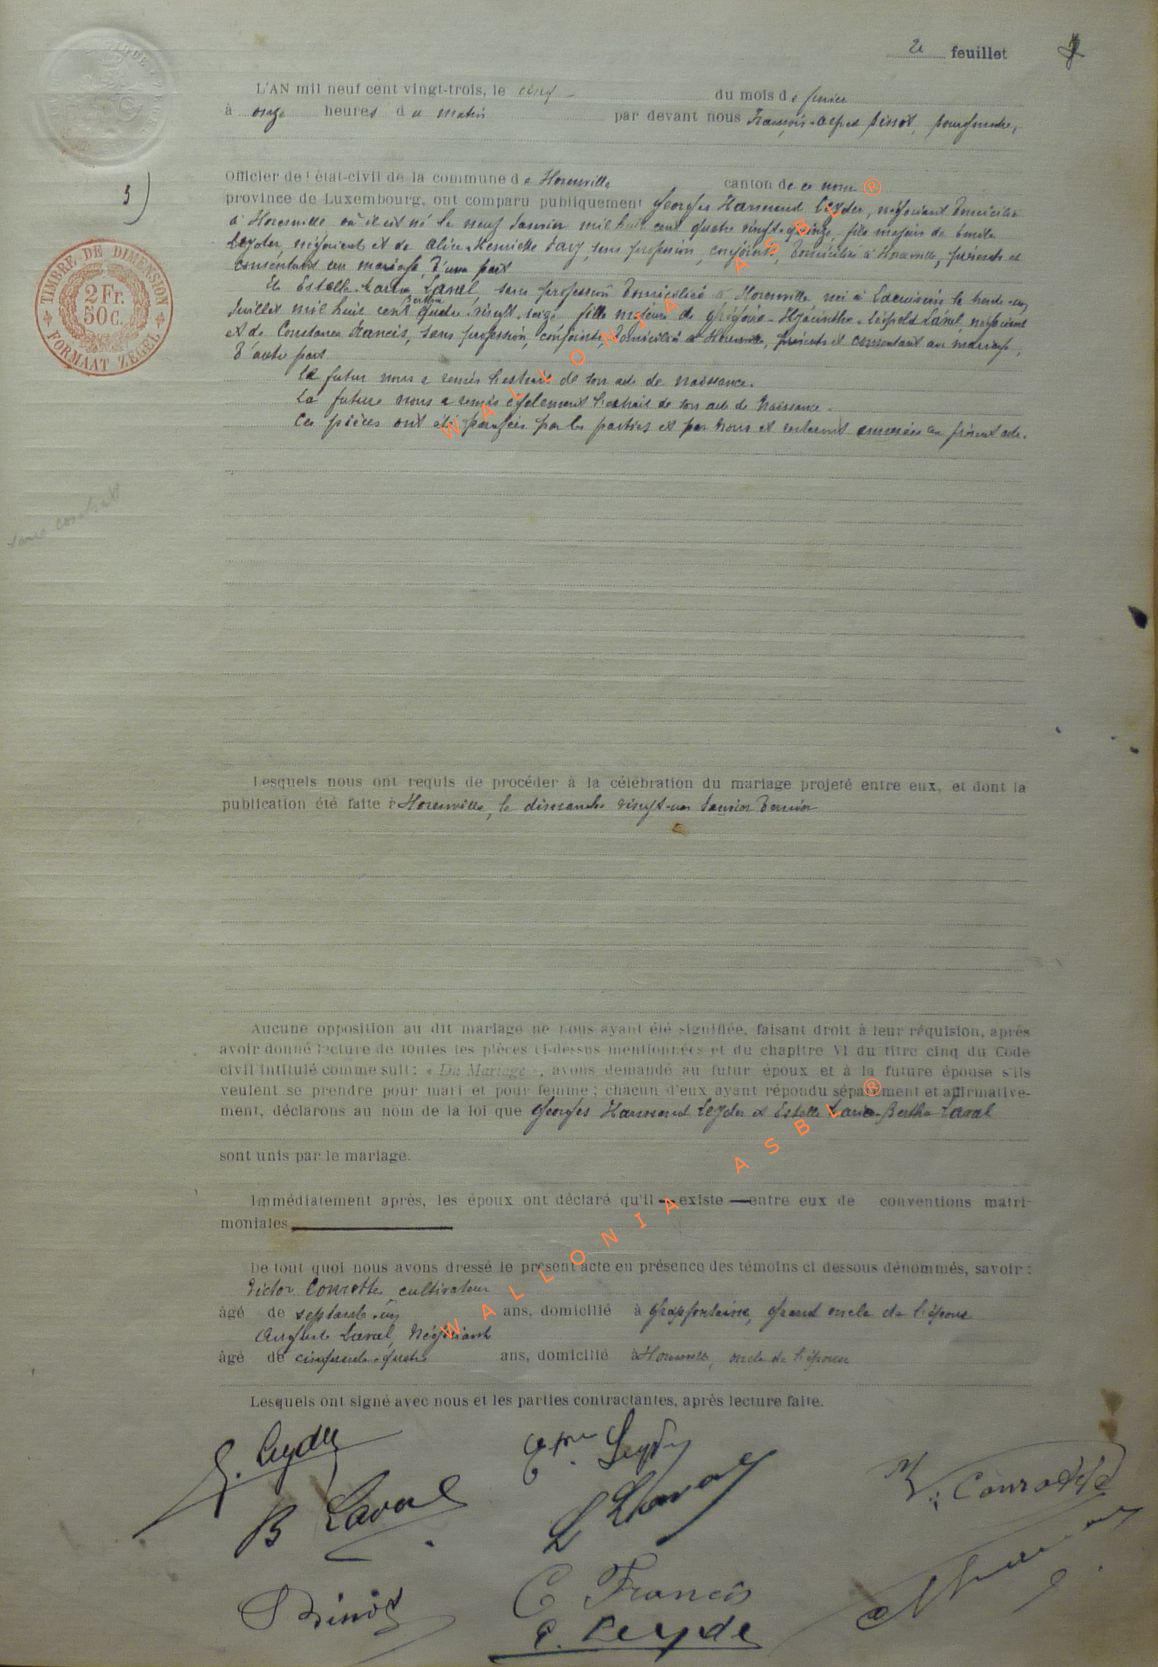 2e feuillet
L'AN mil neuf cent vingt-trois, le cinq du mois de février
à onze heures du matin par devant nous François-Alfred Binot, bourgmestre,
3)
Officier de l'état-civil de la commune de canton de ce nom
province de Luxembourg, ont comparu publiquement Georges Harmand Leyder, négociant domicilié
à où il est né le neuf Janvier mil huit cent quatre vingt-quinze fils majeur de Emile
Leyder, négociant et de Alice-Henriette sans profession, conjoints, domiciliés à présents et
consentant au mariage, d'une part
TIMBRE DE DIMENSION
2 Fr.
50 c.
FORMAAT ZEGEL
Et Estelle-Maria Laval, sans profession domiciliée à née à le trente-un
Bertha
Juillet mil huit cent quatre vingt-seize fille majeure de Grégoire-Hyacinthe-Léopold Laval, négociant
et de Constance Francis, sans profession, conjoints, domiciliés à présents et consentant au mariage,
d'autre part.
Le futur nous a remis l'extrait de son acte de naissance.
La future nous a remis également l'extrait de son acte de naissance.
Ces pièces ont été paraphées par les parties et par nous et resteront annexées au présent acte.
sans contrat
Lesquels nous ont requis de procéder à la célébration du mariage projeté entre eux, et dont la
publication été faite à le dimanche vingt-un Janvier dernier
Aucune opposition au dit mariage ne nous ayant été signifiée, faisant droit à leur réquision, après
avoir donné lecture de toutes les pièces ci-dessus mentionnées et du chapitre VI du titre cinq du Code
civil intitulé comme suit : « Du Mariage », avons demandé au futur époux et à la future épouse s'ils
veulent se prendre pour mari et pour femme ; chacun d'eux ayant répondu séparément et affirmative-
ment, déclarons au nom de la loi que Georges Harmand Leyder et Estelle Maria-Bertha Laval
sont unis par le mariage.
Immédiatement après, les époux ont déclaré qu'il existe entre eux de conventions matri-
moniales
De tout quoi nous avons dressé le présent acte en présence des témoins ci dessous dénommés, savoir :
Victor Conrotte, cultivateur
âgé de septante-un ans, domicilié à Grapfontaine, grand oncle de l'épouse
Auguste Laval, Négociant
âgé de cinquante-quatre ans, domicilié à oncle de l'épouse
Lesquels ont signé avec nous et les parties contractantes, après lecture faite.
G. Leyder
Leyder
V. Conrotte
B Laval
L Laval
Binot
C Francis
E. Leyder
WALLONIA ASBL ®
WALLONIA ASBL ®